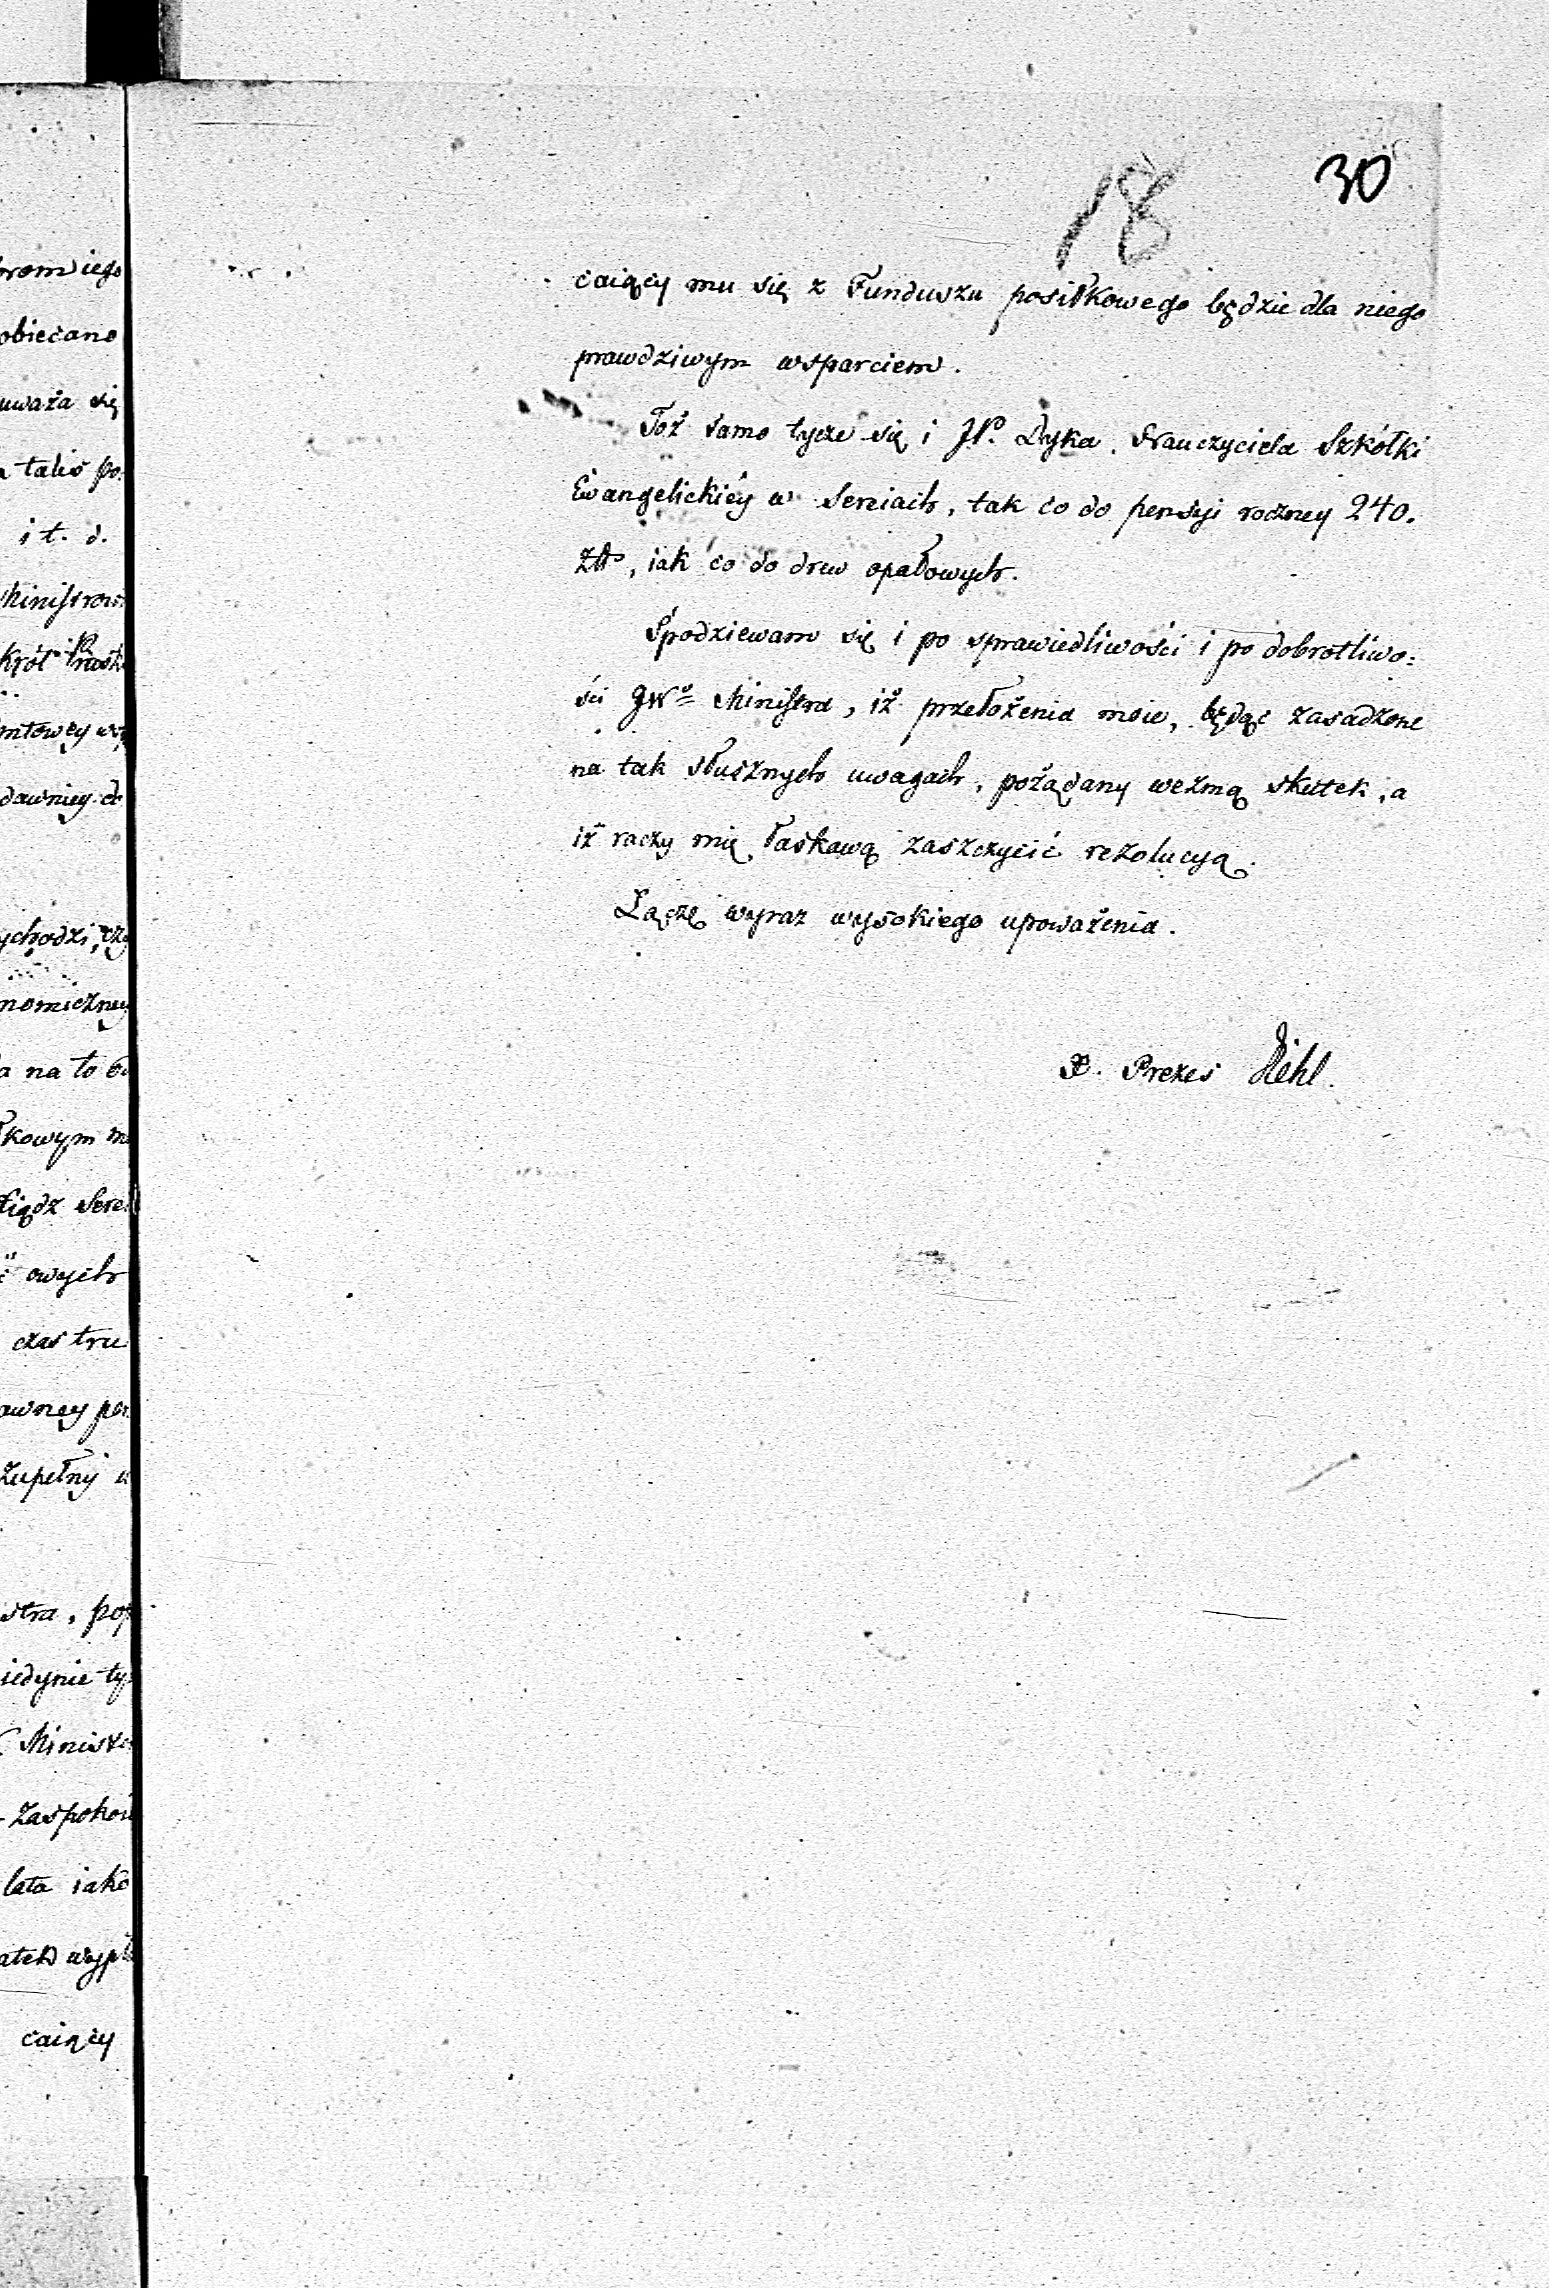 romiego
obiecano
uważa się
talis po:
i t. d.
Ministrow
Król
mtowey
dawniey
ychodzi,
nomiczney
a na to
kowym
Xiądz Sere
owych
czas tru
awney pen
zupełny
stra, pop
iedynie ty
Minist
zaspokoi
lata iako
atek wypła
caiący
18
30
caiący mu się z Funduszu posiłkowego będzie dla niego
prawdziwym wsparciem.
Toż samo tycze się i JP. Dyka, Nauczyciela Szkółki
Ewangelickiéy w Sereiach, tak co do pensyi roczney 240.
Złp, iak co do drew opałowych.
Spodziewam się i po sprawiedliwości i po dobrotliwo:
ści JWo Ministra, iż przełożenia moie, będąc zasadzone
na tak słusznych uwagach, pożądany wezmą skutek, a
iż raczy mię łaskawą zaszczycić rezolucyą.
Łączę wyraz wysokiego upoważenia.
X. Prezes Diehl.